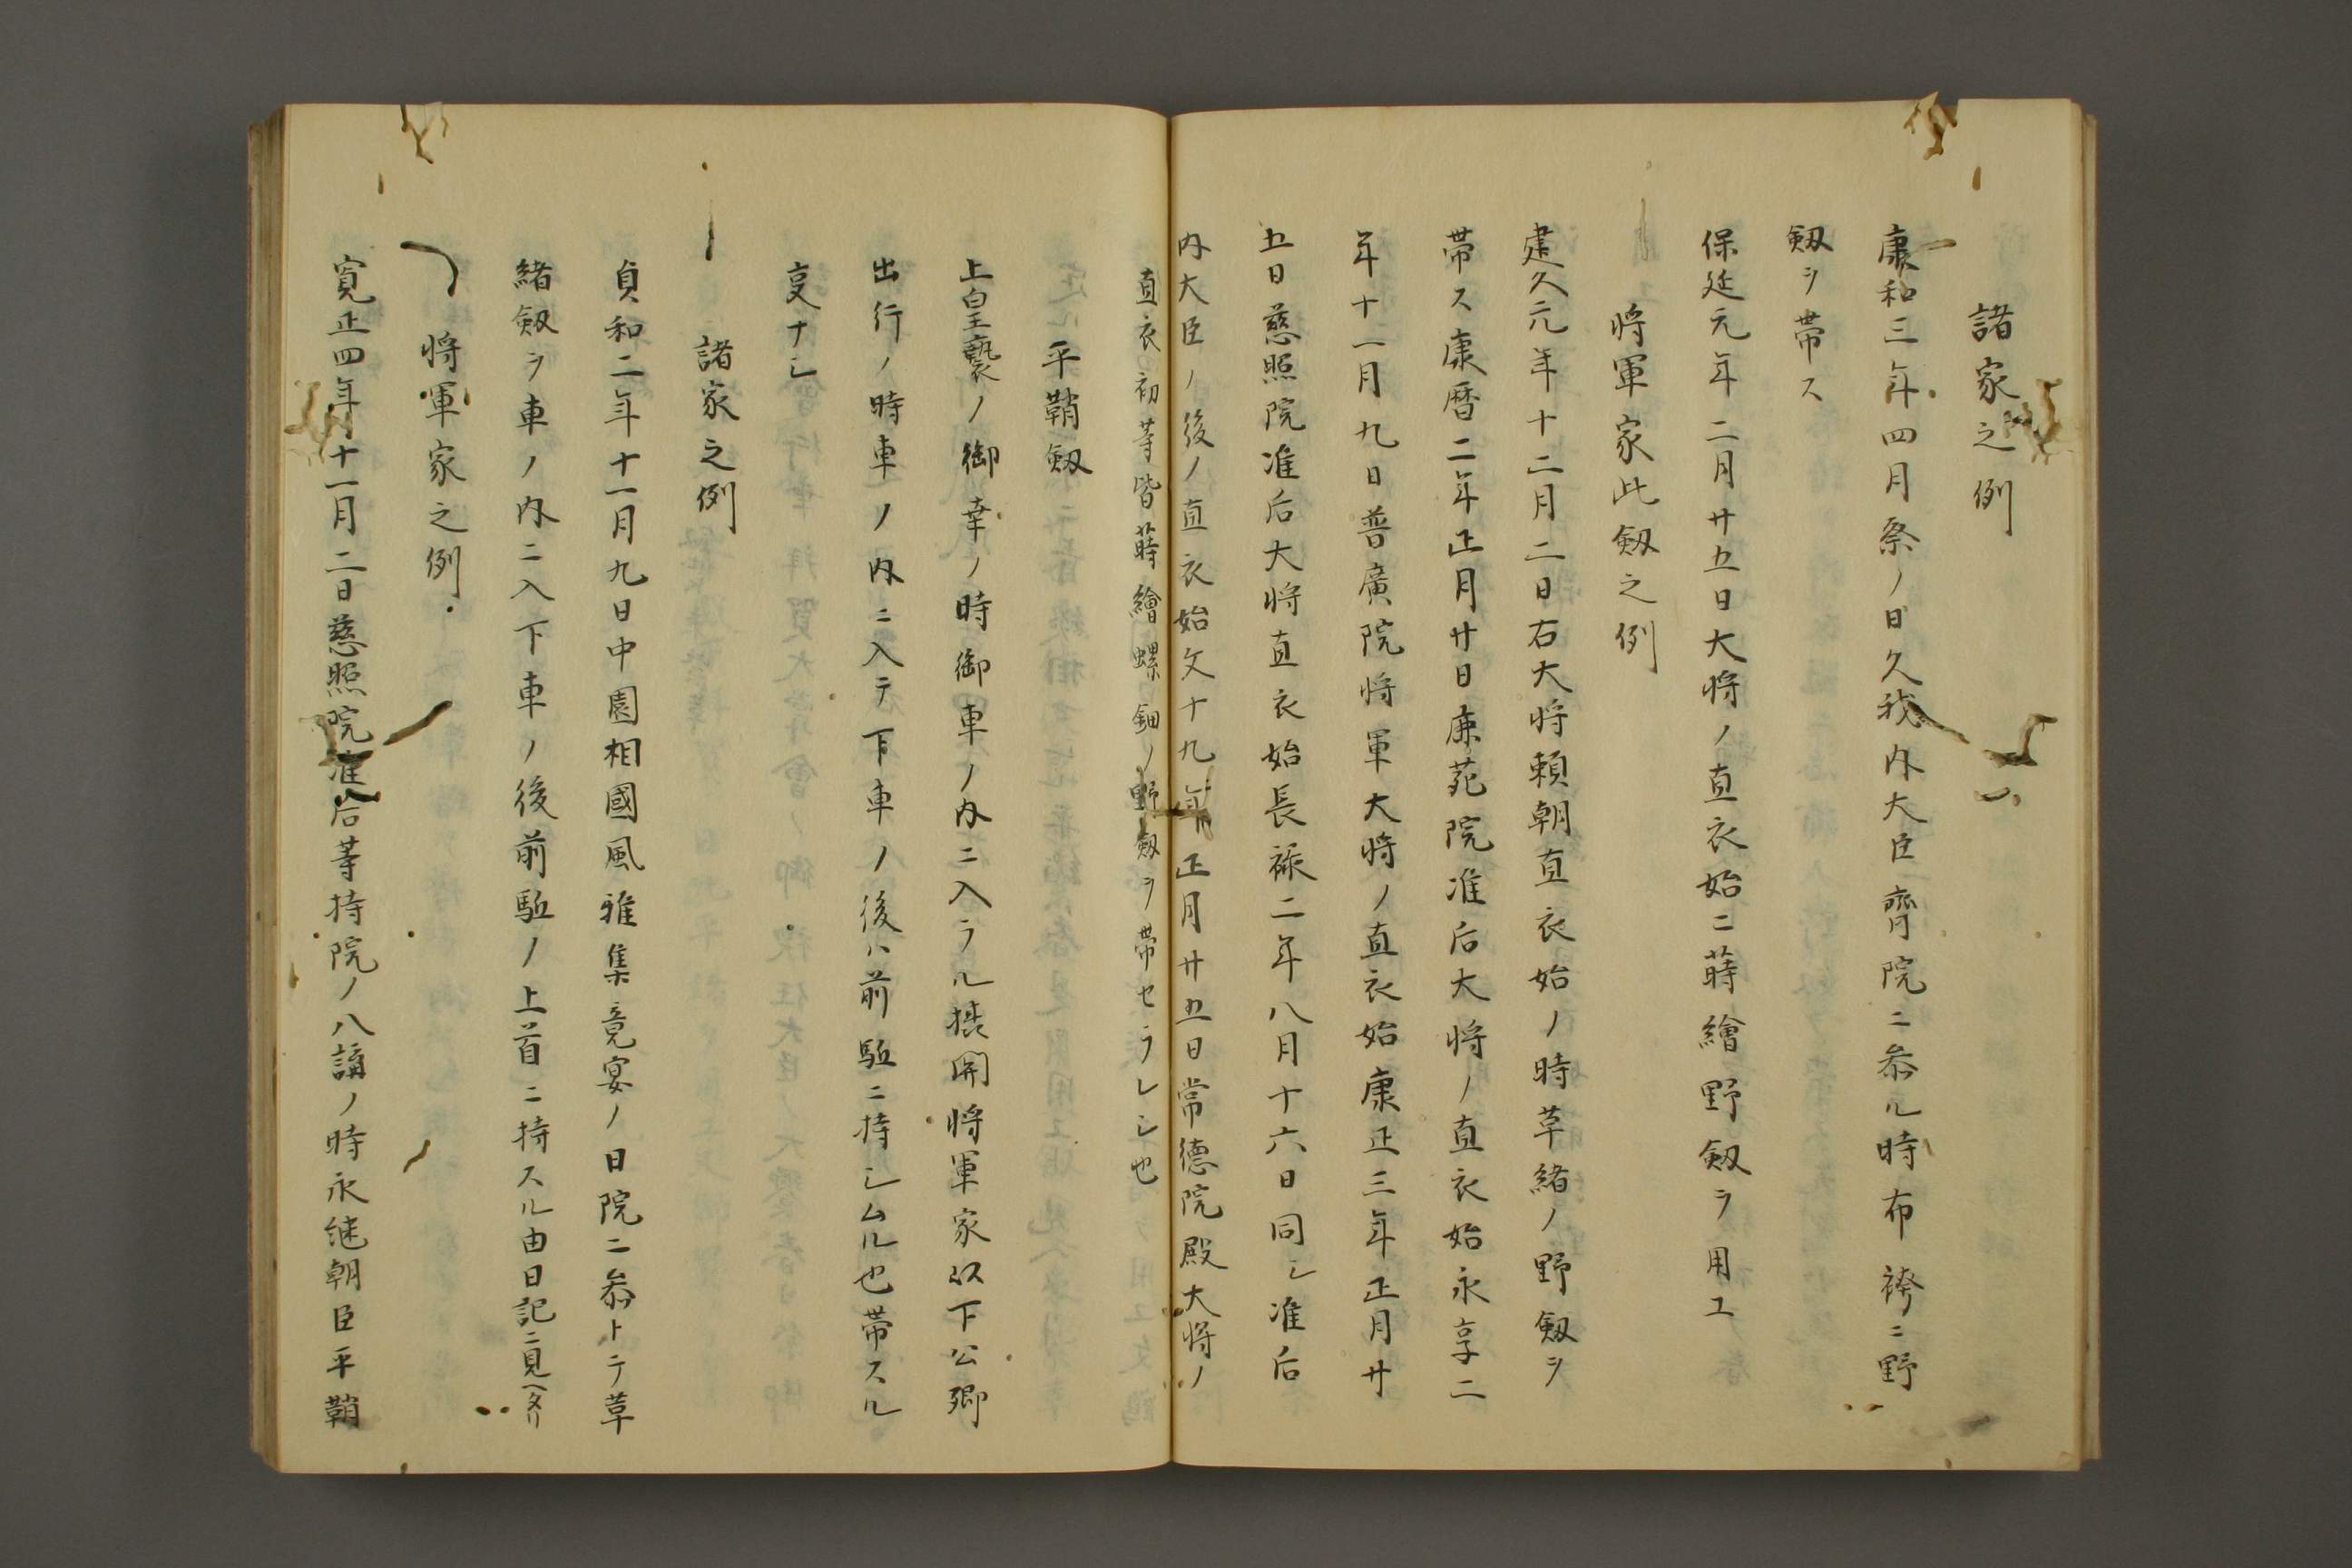 諸家之例
康和三年四月祭ノ日久我内大臣齊院ニ参ル時布袴ニ野
劔ヲ帯ス
保延元年二月廿五日大将ノ直衣始ニ蒔繪野劔ヲ用エ
将軍家此劔之例
建久元年十二月二日右大将頼朝直衣始ノ時草緒ノ野劔ヲ
帯ス康暦二年正月廿日鹿苑院准后大将ノ直衣始永享二
年十一月九日普廣院将軍大将ノ直衣始康正三年正月廿
五日慈照院准后大将直衣始長禄二年八月十六日同シ准后
内大臣ノ後ノ直衣始文十九年正月廿五日常徳院殿大将ノ
直衣初等皆蒔繪螺鈿ノ野劔ヲ帯セラレシ也
平鞘劔
上皇褻ノ御幸ノ時御車ノ内ニ入ラル摂関将軍家以下公卿
出行ノ時車ノ内ニ入テ下車ノ後ハ前駈ニ持シムル也帯スル
叓ナシ
諸家之例
貞和二年十一月九日中園相國風雅集竟宴ノ日院ニ参トテ草
緒劔ヲ車ノ内ニ入下車ノ後前駈ノ上首ニ持スル由日記ニ見ヘタリ
将軍家之例
寛正四年十一月二日慈照院准后等持院ノ八講ノ時永継朝臣平鞘